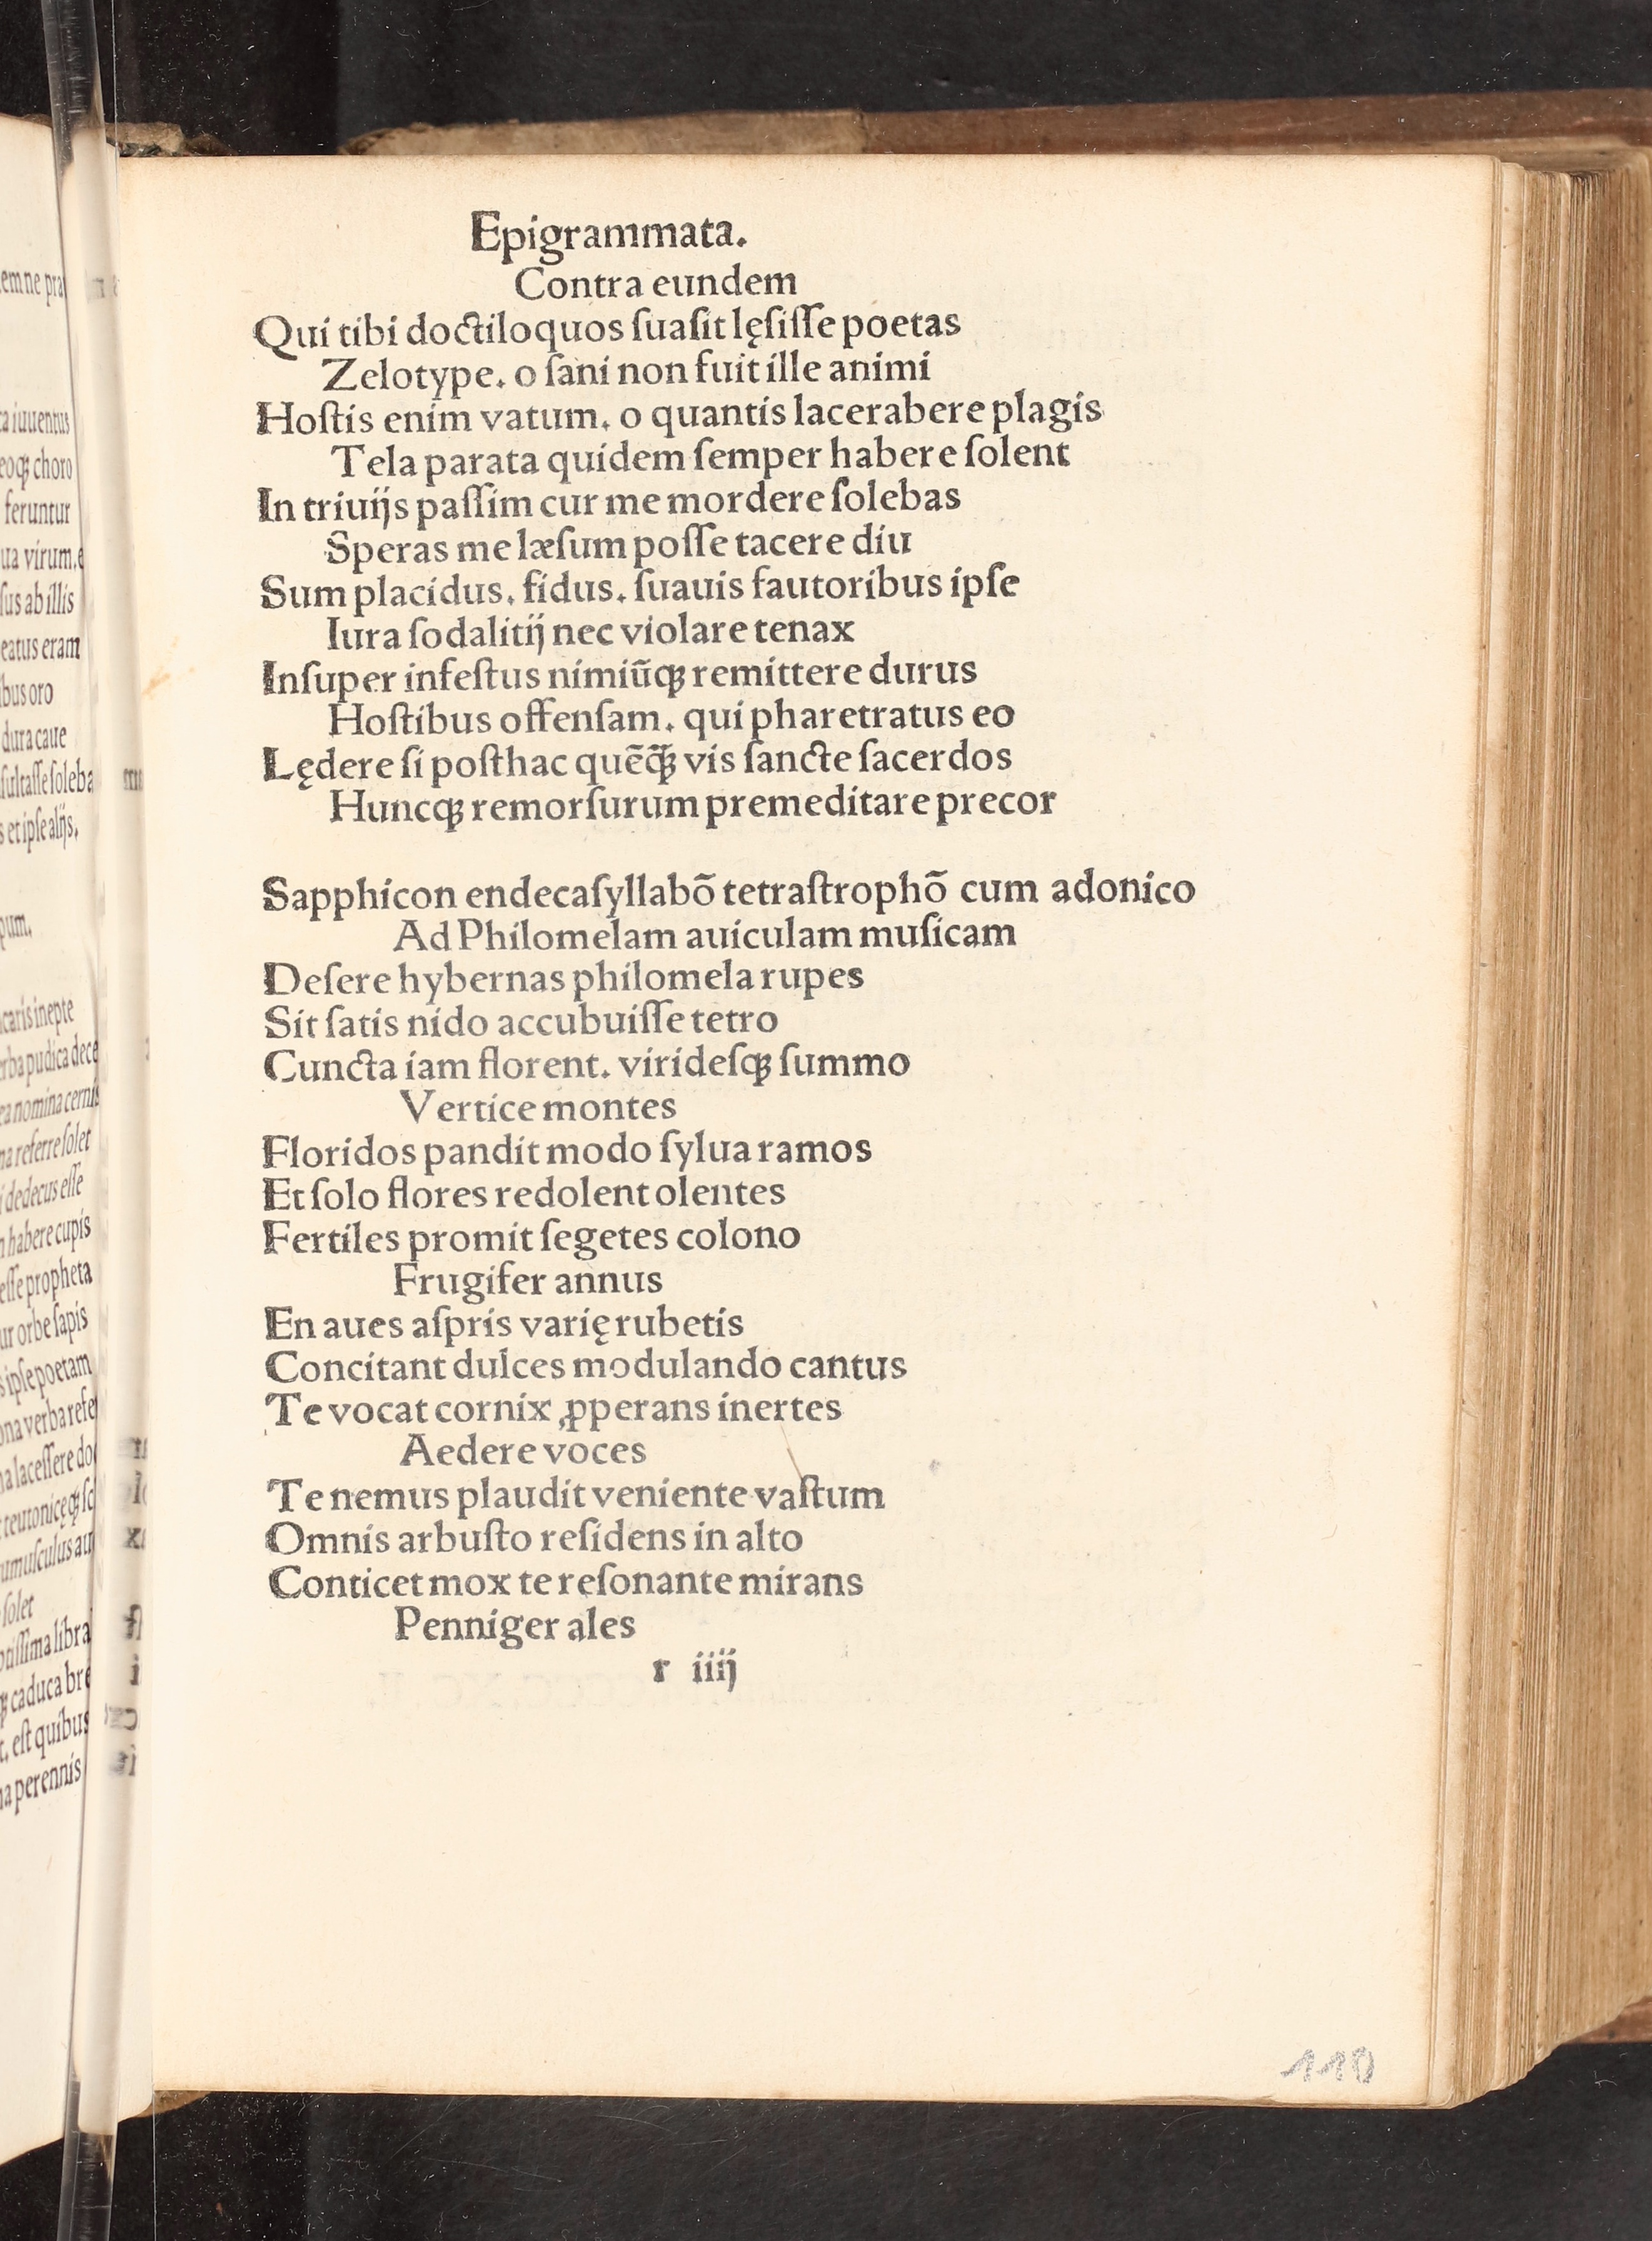 Epigrammata.
Contra eundem
Qui tibi doctiloquos ſuaſit lęſiſſe poetas
Zelotype. o ſani non fuit ille animi
Hoſtis enim vatum. o quantis lacerabere plagis
Tela parata quidem ſemper habere ſolent
In triuijs paſſim cur me mordere ſolebas
Speras me læſum poſſe tacere diu
Sum placidus. fidus. ſuauis fautoribus ipſe
Iura ſodalitij nec violare tenax
Inſuper infeſtus nimiũqꝫ remittere durus
Hoſtibus offenſam. qui pharetratus eo
Lędere ſi poſthac quẽq̃ꝫ vis ſancte ſacerdos
Huncqꝫ remorſurum premeditare precor
Sapphicon endecaſyllabõ tetraſtrophõ cum adonico
Ad Philomelam auiculam muſicam
Deſere hybernas philomela rupes
Sit ſatis nido accubuiſſe tetro
Cuncta iam florent. virideſqꝫ ſummo
Vertice montes
Floridos pandit modo ſylua ramos
Et ſolo flores redolent olentes
Fertiles promit ſegetes colono
Frugifer annus
En aues aſpris varię rubetis
Concitant dulces modulando cantus
Te vocat cornix ꝓperans inertes
Aedere voces
Te nemus plaudit veniente vaſtum
Omnis arbuſto reſidens in alto
Conticet mox te reſonante mirans
Penniger ales
r iiij
110